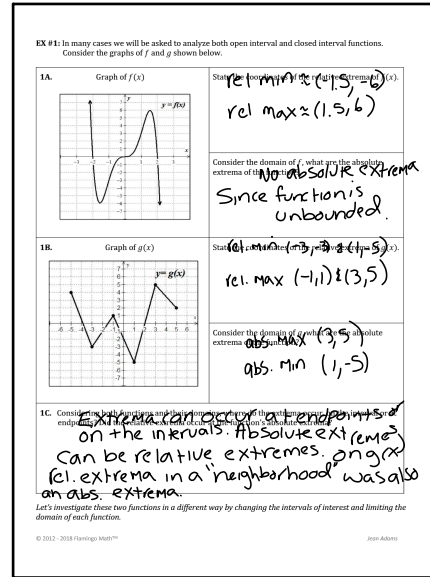 EX #1: In many cases we will be asked to analyze both open interval and closed interval functions.
Consider the graphs of f and g shown below.
1A. Graph of f(x)
y = f(x)
State the coordinates of the relative extrema of f(x).
rel min ≈ (-1.5, -6)
rel max ≈ (1.5, 6)
Consider the domain of f, what are the absolute
extrema of the function?
No absolute extrema
Since function is
unbounded.
1B. Graph of g(x)
y= g(x)
State the coordinates of the relative extrema of g(x).
rel. min (-3,-3) & (1,-5)
rel. max (-1,1) & (3,5)
Consider the domain of g, what are the absolute
extrema of the function?
abs. max (3,5)
abs. min (1,-5)
1C. Considering both functions and their domains, where do the extrema occur,
endpoints? Did the relative extrema occur at the function's absolute extrema?
Extrema can occur @ endpoints or
on the intervals. Absolute extremes
can be relative extremes. on g(x)
rel. extrema in a "neighborhood" was also
an abs. extrema.
Let's investigate these two functions in a different way by changing the intervals of interest and limiting the
domain of each function.
© 2012 - 2018 Flamingo Math™
Jean Adams